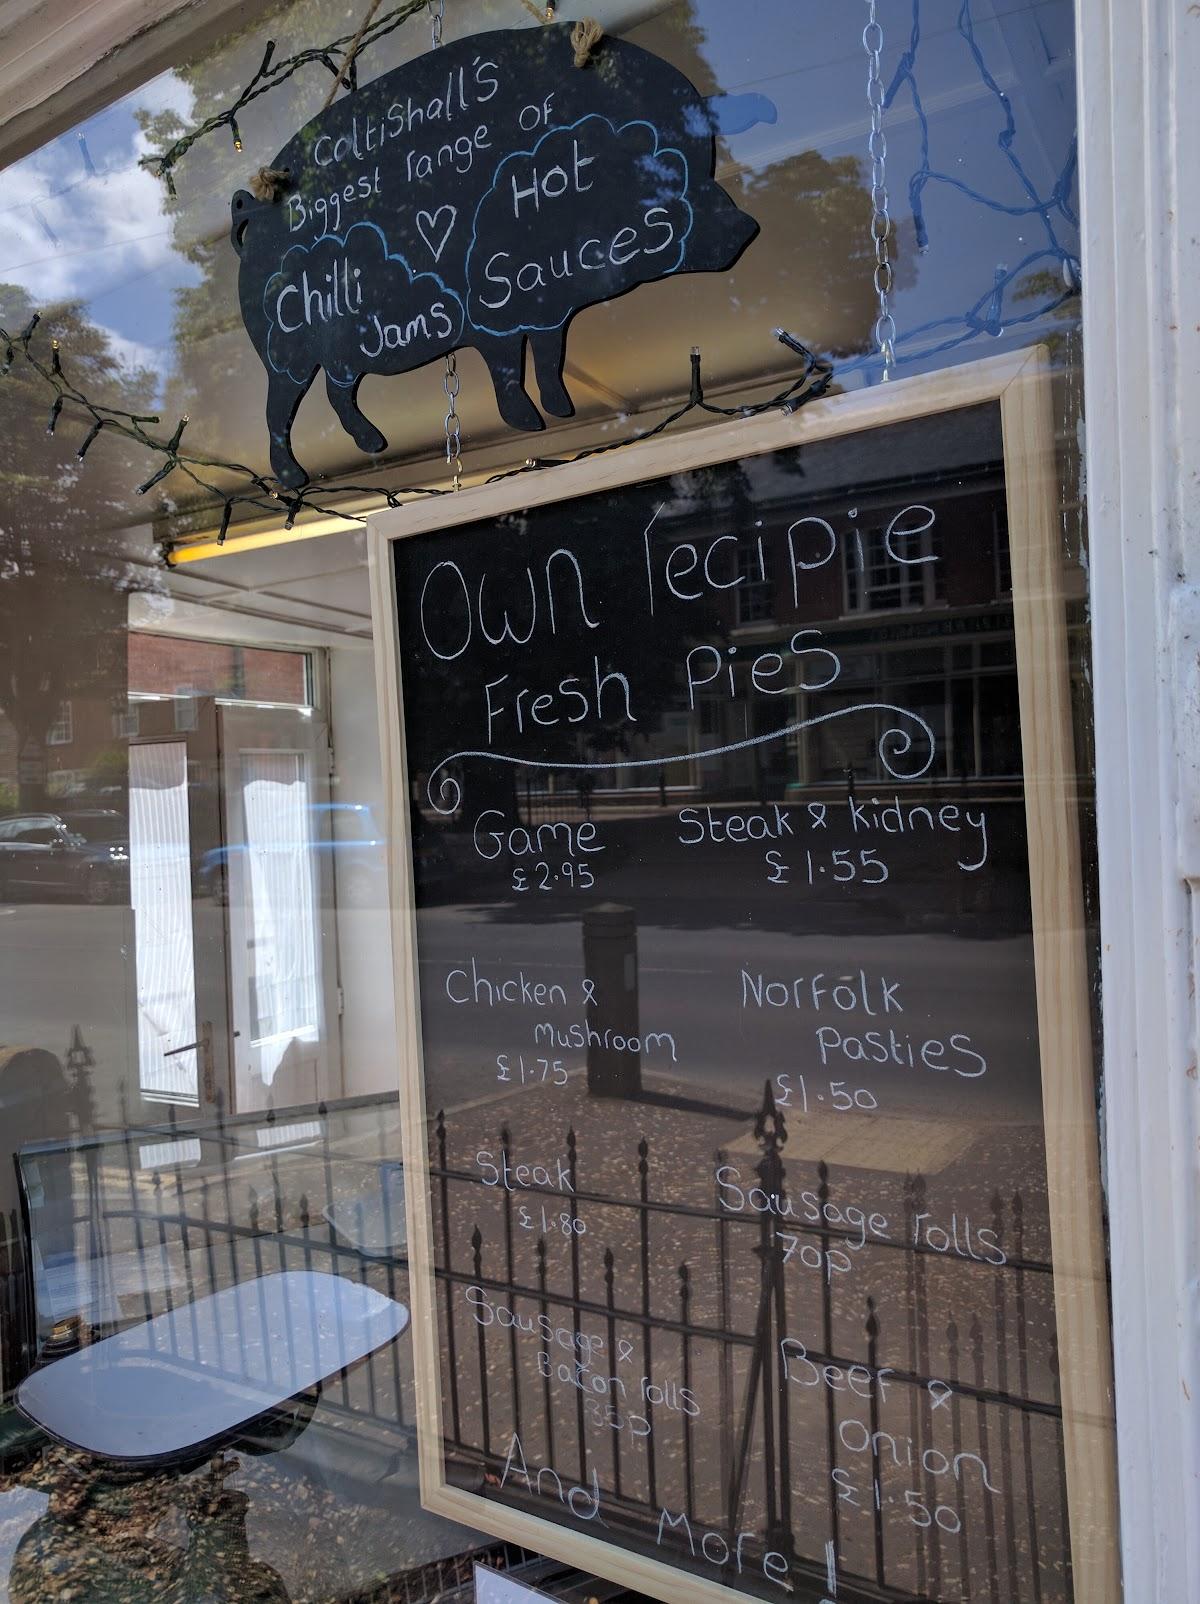 Coltishall's
Biggest range of
Chilli
Jams
Hot
Sauces
Own recipie
Fresh Pies
Game
£2.95
Steak & kidney
£1.55
Chicken &
Mushroom
£1.75
Norfolk
Pasties
£1.50
Steak
£1.80
Sausage rolls
70p
Sausage &
Bacon rolls
Beef &
Onion
£1.50
And More!